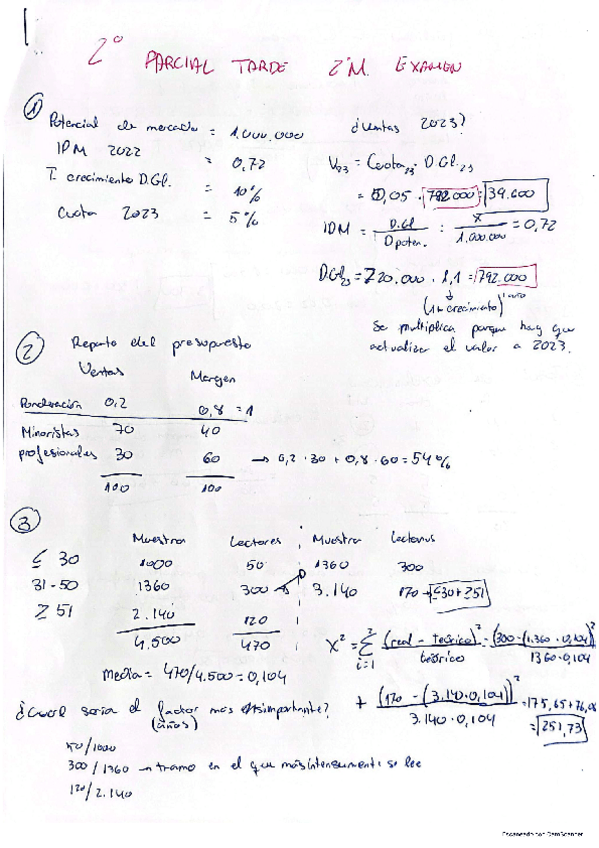 2º PARCIAL TARDE 2ºM. EXAMEN
① Potencial de mercado = 1.000.000
IPM 2022 = 0,72
T. crecimiento D.Gl. = 10%
Cuota 2023 = 5%
¿Ventas 2023?
V23 = Cuota23 · D.Gl.23
= 0,05 · 792.000 = 39.600
IDM = D.Gl / D poten. : x / 1.000.000 = 0,72
D.Gl23 = 720.000 · 1,1 = 792.000
(1 + crecimiento)
Se multiplica porque hay que
actualizar el valor a 2023.
② Reparto del presupuesto
Ventas Margen
Ponderación 0,2 0,8 = 1
Minoristas 70 40
profesionales 30 60 → 0,2 · 30 + 0,8 · 60 = 54%
100 100
③
Muestra Lectores Muestra Lectores
≤ 30 1000 50 1360 300
31-50 1360 300 → 3.140 170 → ≤30 + ≥51
≥ 51 2.140 120
4.500 470
Media = 470/4.500 = 0,104
X² = Σ i=1 2 (real - teórico)² / teórico = (300 - (1.360 · 0,104))² / 1360 · 0,104
+ (170 - (3.140 · 0,104))² / 3.140 · 0,104 = 175,65 + 76,08
= 251,73
¿Cual seria el factor mas importante?
(años)
50/1000
300/1360 → tramo en el que más intensamente se lee
120/2.140
Escaneado con CamScanner